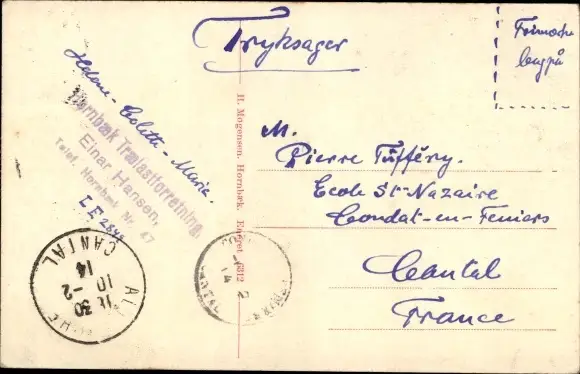 Tryksager
Frimærke
bagpå
Helene - Colette - Marie.
Hornbæk Trælastforretning
Einar Hansen,
Telef. Hornbæk Nr. 47
H. Mogensen. Hornbæk. Eneret 6312
M.
Pierre Tufféry.
Ecole St-Nazaire
Condat-en-Feniers
Cantal
France
10 - 2
14
CANTAL